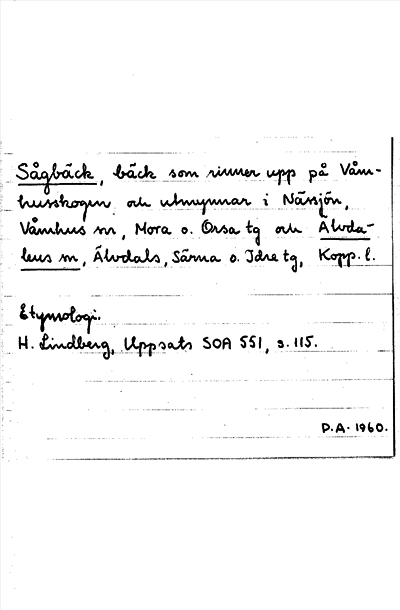 Sågbäck, bäck som rinner upp på Våm-
husskogen och utmynnar i Nässjön,
Våmhus sn, Mora o. Orsa tg och Älvda-
lens sn, Älvdals, Särna o. Idre tg, Kopp. l.
Etymologi.
H. Lindberg, Uppsats SOA 551, s. 115.
P.A. 1960.